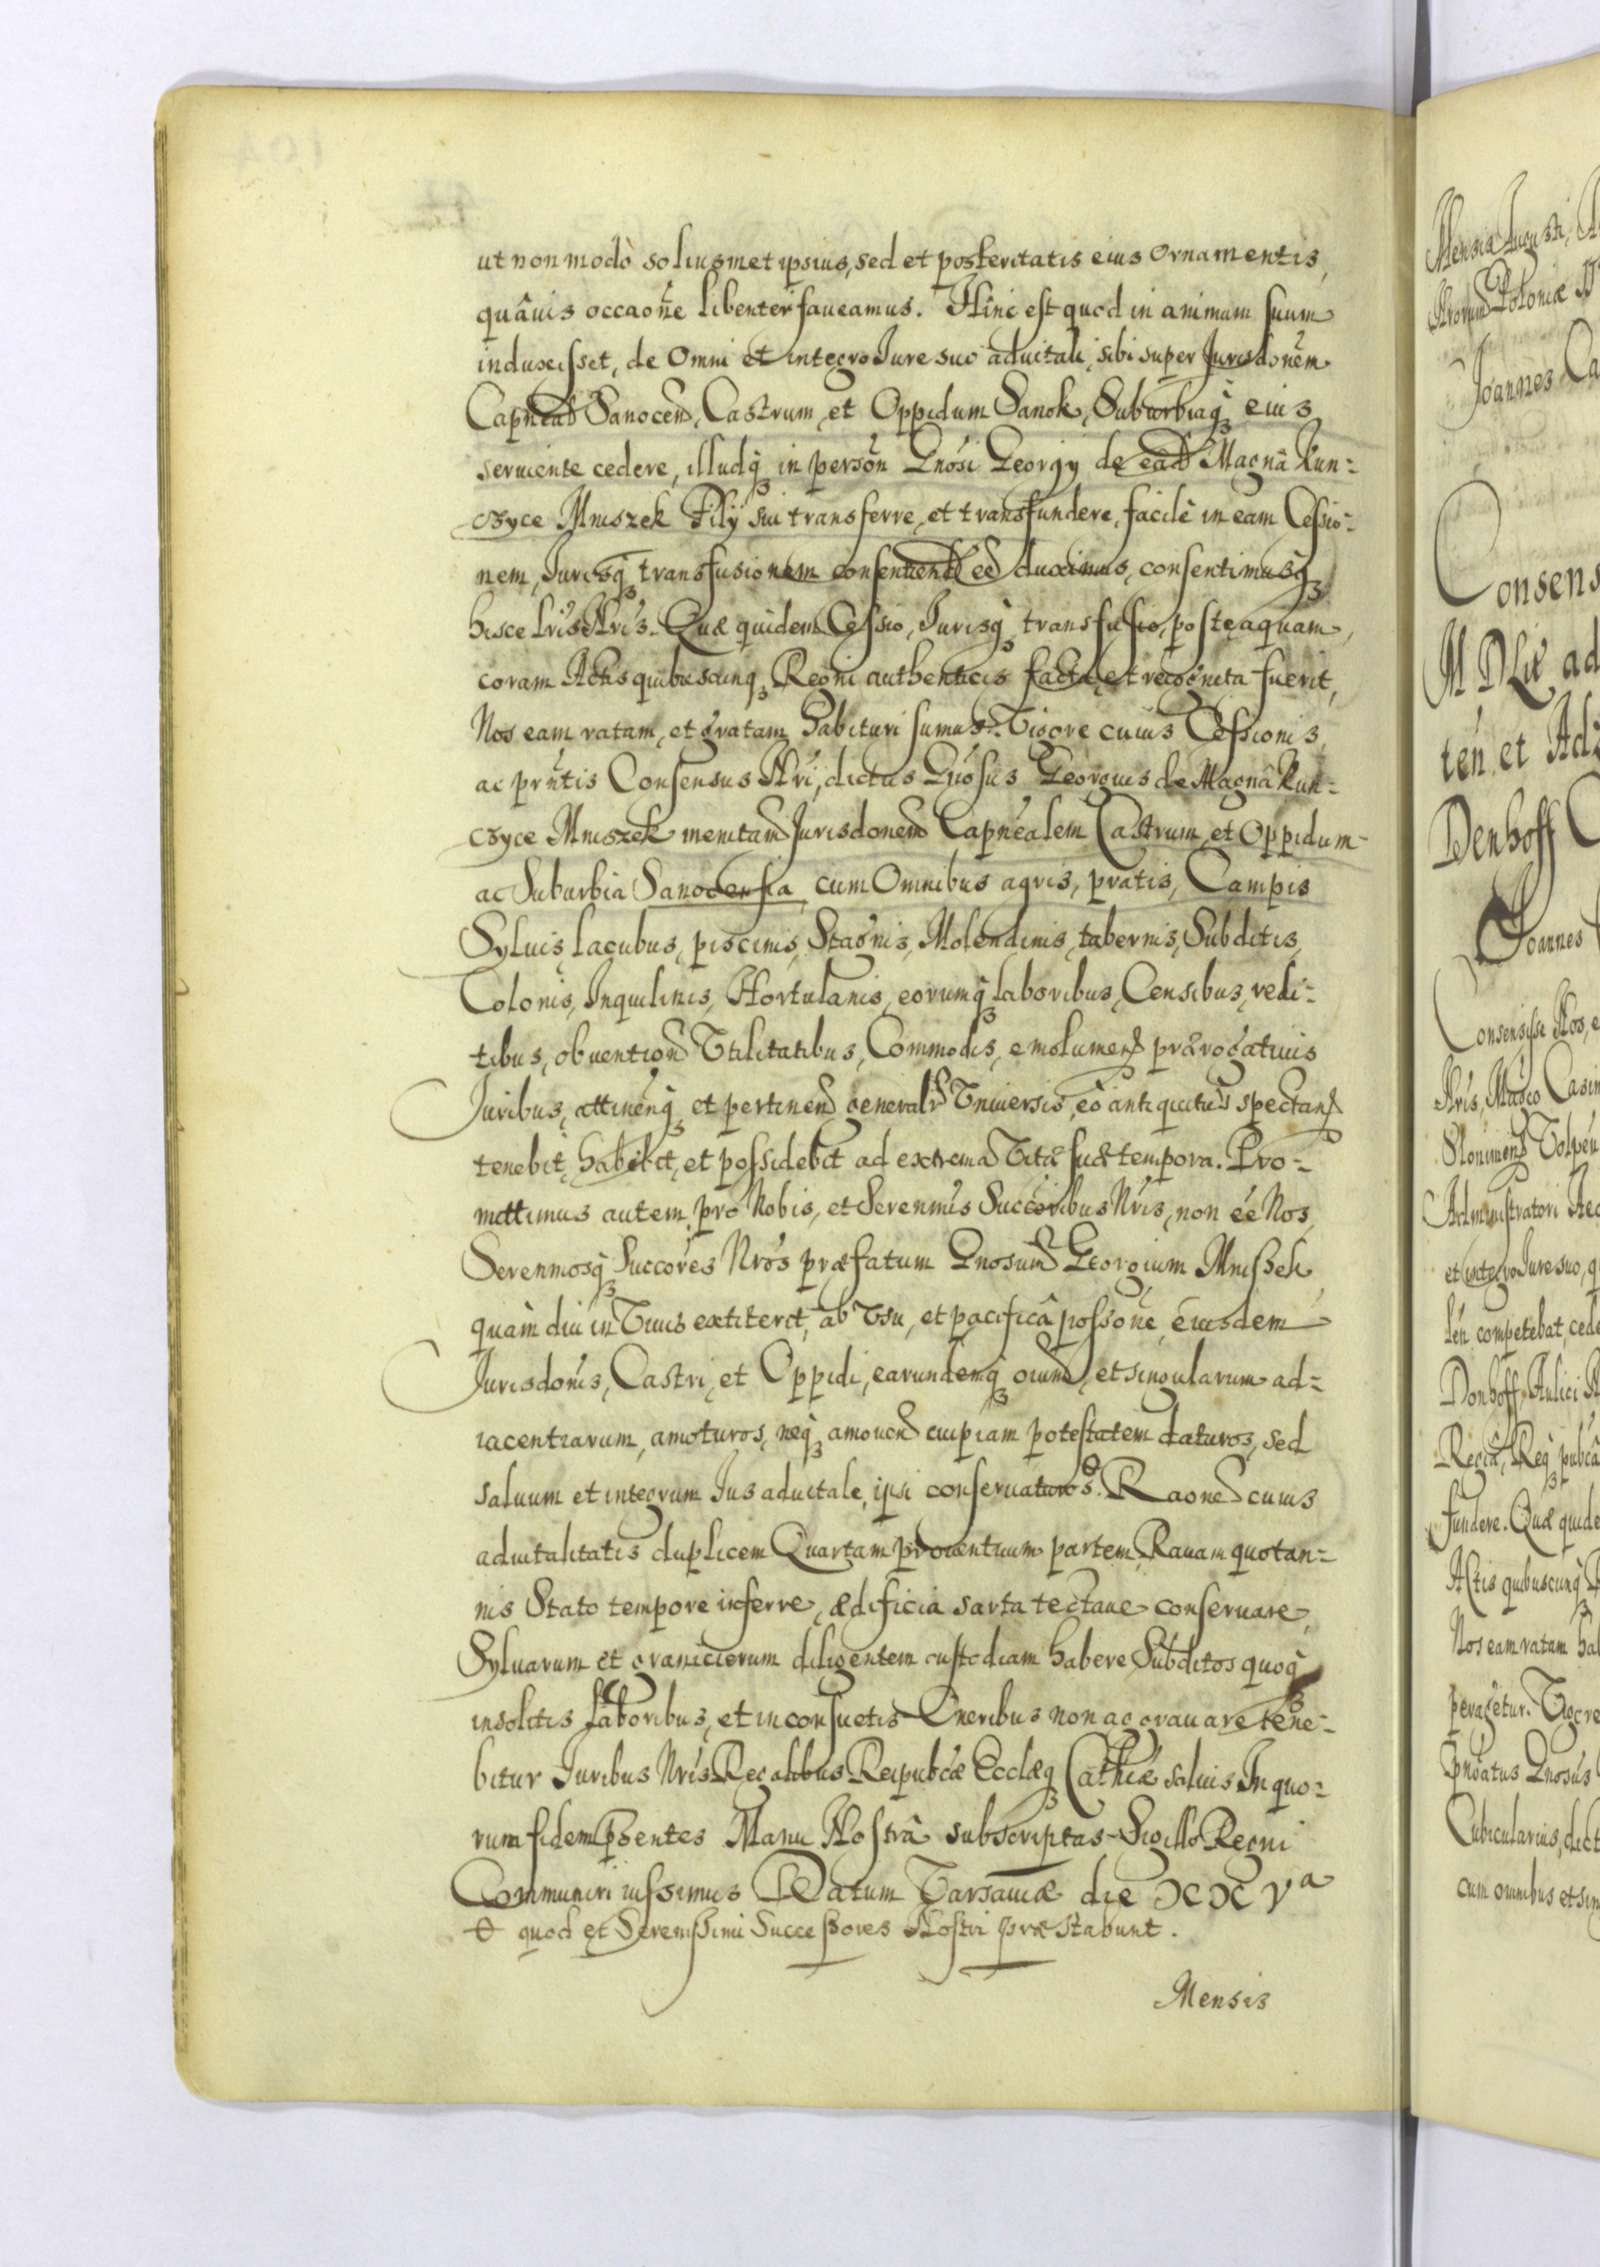 ut non modò soliusmet ipsius, sed et posteritatis eius Ornamentis,
quâuis occaōne libenter faueamus. Hinc est quod in animum suum
induxisset, de Omni et integro Iure suo aduitali, sibi super Jurisdonem
Capnēal Sanocen, Castrum, et Oppidum Sanok, Suburbiaq; eius
seruiente cedere, illudq; in person Gnosi Georgij de ead Magnâ Kun-
czyce Mniszek Filij sui transferre, et transfundere, facilè in eam Cessio-
nem, Iurisq; transfusionem consentiend eē duximus, consentimusq;
hisce Lris Nris. Quæ quidem Cessio, Iurisq; transfusio, posteaquam,
coram Actis quibuscunq; Regni authenticis facta, et recognita fuerit,
Nos eam ratam, et gratam habituri sumus. Vigore cuius Cessionis,
ac prntis Consensus Nri, dictus Gnosus Georgius de Magnâ Kun-
czyce Mniszek menitam Jurisdonem Capnēalem Castrum, et Oppidum
ac Suburbia Sanocensia, cum Omnibus agris, pratis, Campis
Syluis, lacubus, piscinis, Stagnis, Molendinis, tabernis, Subditis,
Colonis, Inquilinis, Hortulanis, eorumq; laboribus, Censibus, redi-
tibus, obuention Vtilitatibus, Commodis, emolumen prærogatiuis
Iuribus, attinenq; et pertinen generalr Vniuersis, eò antiquitus spectan
tenebit, habebit, et possidebit ad extrema Vitæ suæ tempora. Pro-
mittimus autem, pro Nobis, et Serenmis Succoribus Nris, non eē Nos,
Serenmosq; Succores Nros præfatum Gnosum Georgium Mnißek
quàm diu in Viuis extiterit, ab Vsu, et pacificâ possone, eiusdem
Jurisdonis, Castri, et Oppidi, earundemq; oium, et singularum ad-
iacentiarum, amoturos, neq; amouen cuipiam potestatem daturos, sed
saluum et integrum Ius aduitale, ipsi conseruaturos. Raone cuius
aduitalitatis duplicem Quartam prouentuum partem, Rauam quotan-
nis Stato tempore inferre, ædificia sarta tectaue conseruare,
Syluarum et graniciorum diligentem custodiam habere Subditos quoq;
insolitis laboribus, et inconsuetis Oneribus non aggrauare tene-
bitur Iuribus Nris Regalibus Reipubcæ Ecclæq; Cathcæ saluis In quo-
rum fidem psentes Manu Nostrâ subscriptas Sigillo Regni
Communiri iussimus Datum Varsauiæ die XXVa
⊕ quod et Serenißimi Succeßores Nostri præstabunt.
Mensis